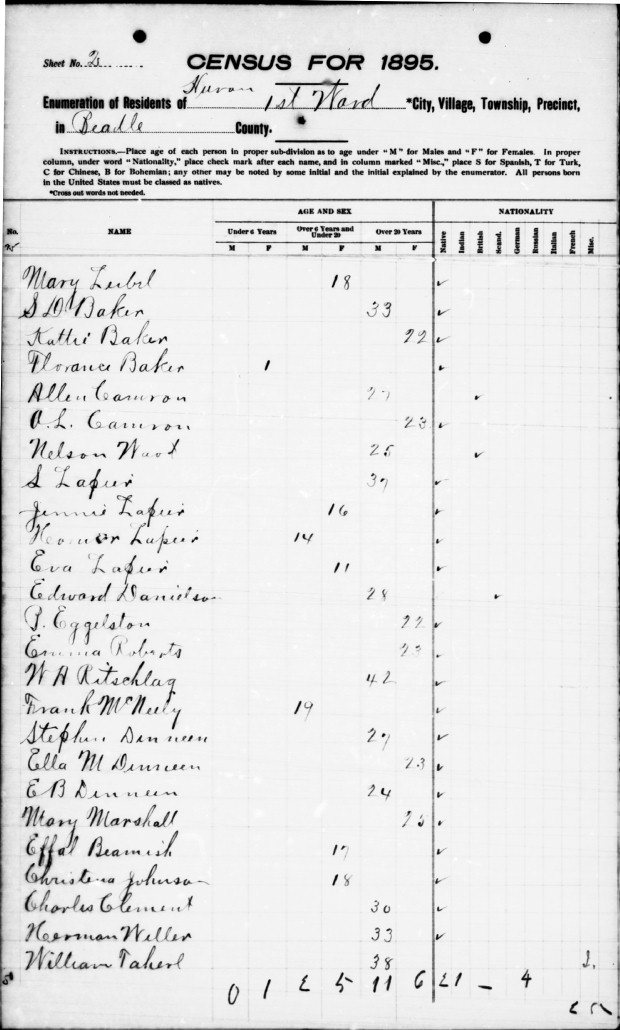 Sheet No. 2
CENSUS FOR 1895.
Huron
Enumeration of Residents of 1st Ward *City, Village, Township, Precinct,
in Beadle County.
INSTRUCTIONS.—Place age of each person in proper sub-division as to age under "M" for Males and "F" for Females. In proper
column, under word "Nationality," place check mark after each name, and in column marked "Misc.," place S for Spanish, T for Turk,
C for Chinese, B for Bohemian; any other may be noted by some initial and the initial explained by the enumerator. All persons born
in the United States must be classed as natives.
*Cross out words not needed.
AGE AND SEX NATIONALITY
No. NAME Under 6 Years Over 6 Years and Under 20 Over 20 Years Native Indian British Scand. German Russian Italian French Misc.
M F M F M F
Mary 18 ✓
Baker 33 ✓
Kattie Baker 22 ✓
Florance Baker 1 ✓
Allen Camron 27 ✓
O.L. Camron 23 ✓
Nelson 25 ✓
S Lapier 37 ✓
Jennie Lapier 16 ✓
Lapier 14 ✓
Eva Lapier 11 ✓
Edward Danielson 28 ✓
P. Eggelston 22 ✓
Emma Roberts 23 ✓
W A Ritschlag 42 ✓
Frank McNeely 19 ✓
Stephen Dinneen 27 ✓
Ella M Dinneen 23 ✓
E B Dinneen 24 ✓
Mary Marshall ✓
Effal Beamish 17 ✓
Christena Johnson 18 ✓
Charles Clement 30 ✓
Herman Weller 33 ✓
William 38
50 0 1 2 5 11 6 21 – 4